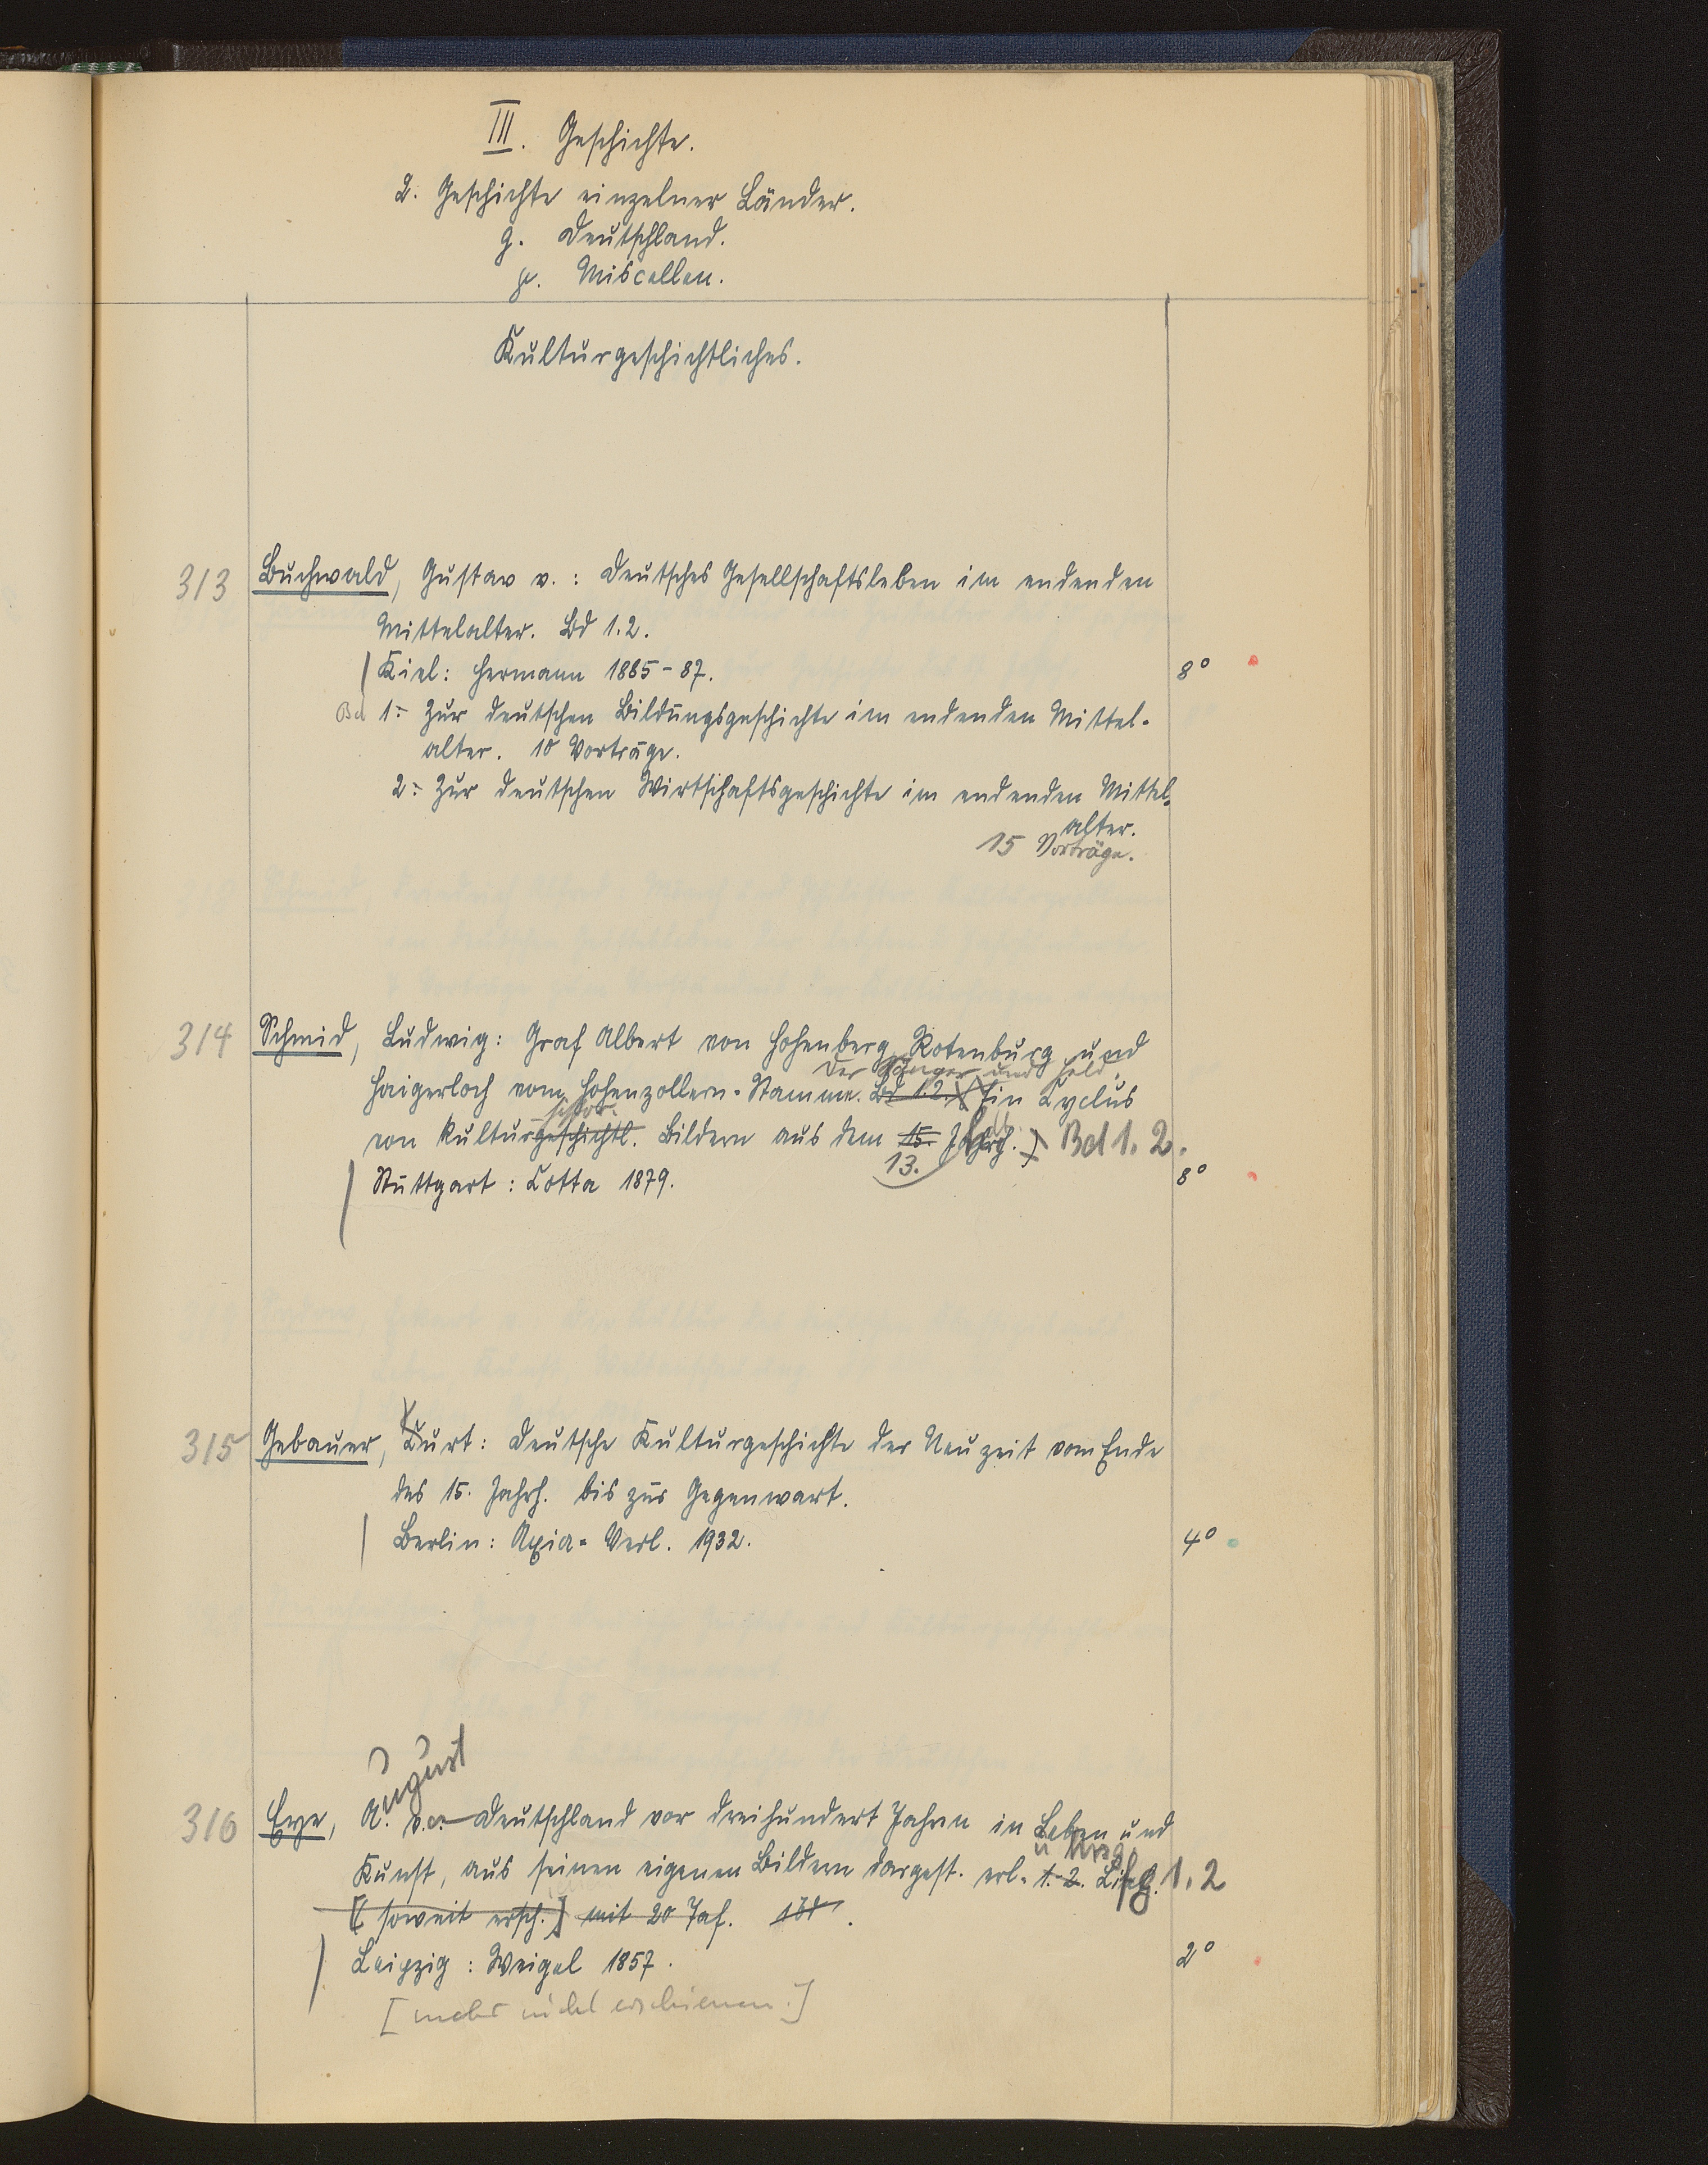 III. Geschichte.
2. Geschichte einzelner Länder.
g. Deutschland.
p. Miscellen.
Kulturgeschichtliches.
313 Buchwald, Gustav v.: Deutsches Gesellschaftsleben im endenden
Mittelalter. Bd 1.2.
Kiel: Hermann 1885-87. 8°
Bd 1: Zur deutschen Bildungsgeschichte im endenden Mittel-
alter. 10 Vorträge.
2: Zur deutschen Wirtschaftsgeschichte im endenden Mittel-
alter.
15 Vorträge.
314 Schmid, Ludwig: Graf Albert von Hohenberg, Rotenburg und
Der Sänger und Held.
Haigerloch vom Hohenzollern-Stamme. Bd 1.2. Ein Cyclus
histor.
von kulturgeschichtl. Bildern aus dem 15. Jahrh.) Bd 1. 2.
13.
Stuttgart: Cotta 1879. 8°
315 Gebauer, Curt: Deutsche Kulturgeschichte der Neuzeit vom Ende
des 15. Jahrh. bis zur Gegenwart.
Berlin: Axia-Verl. 1932. 4°
316 Eye, August v.: Deutschland vor dreihundert Jahren in Leben und
u hrsg.
Kunst, aus seinen eigenen Bildern dargest. erl. 1.-2. Lifg. 1. 2
[soweit ersch.] mit 20 Taf.
Leipzig: Weigel 1857. 2°
[mehr nicht erschienen.]